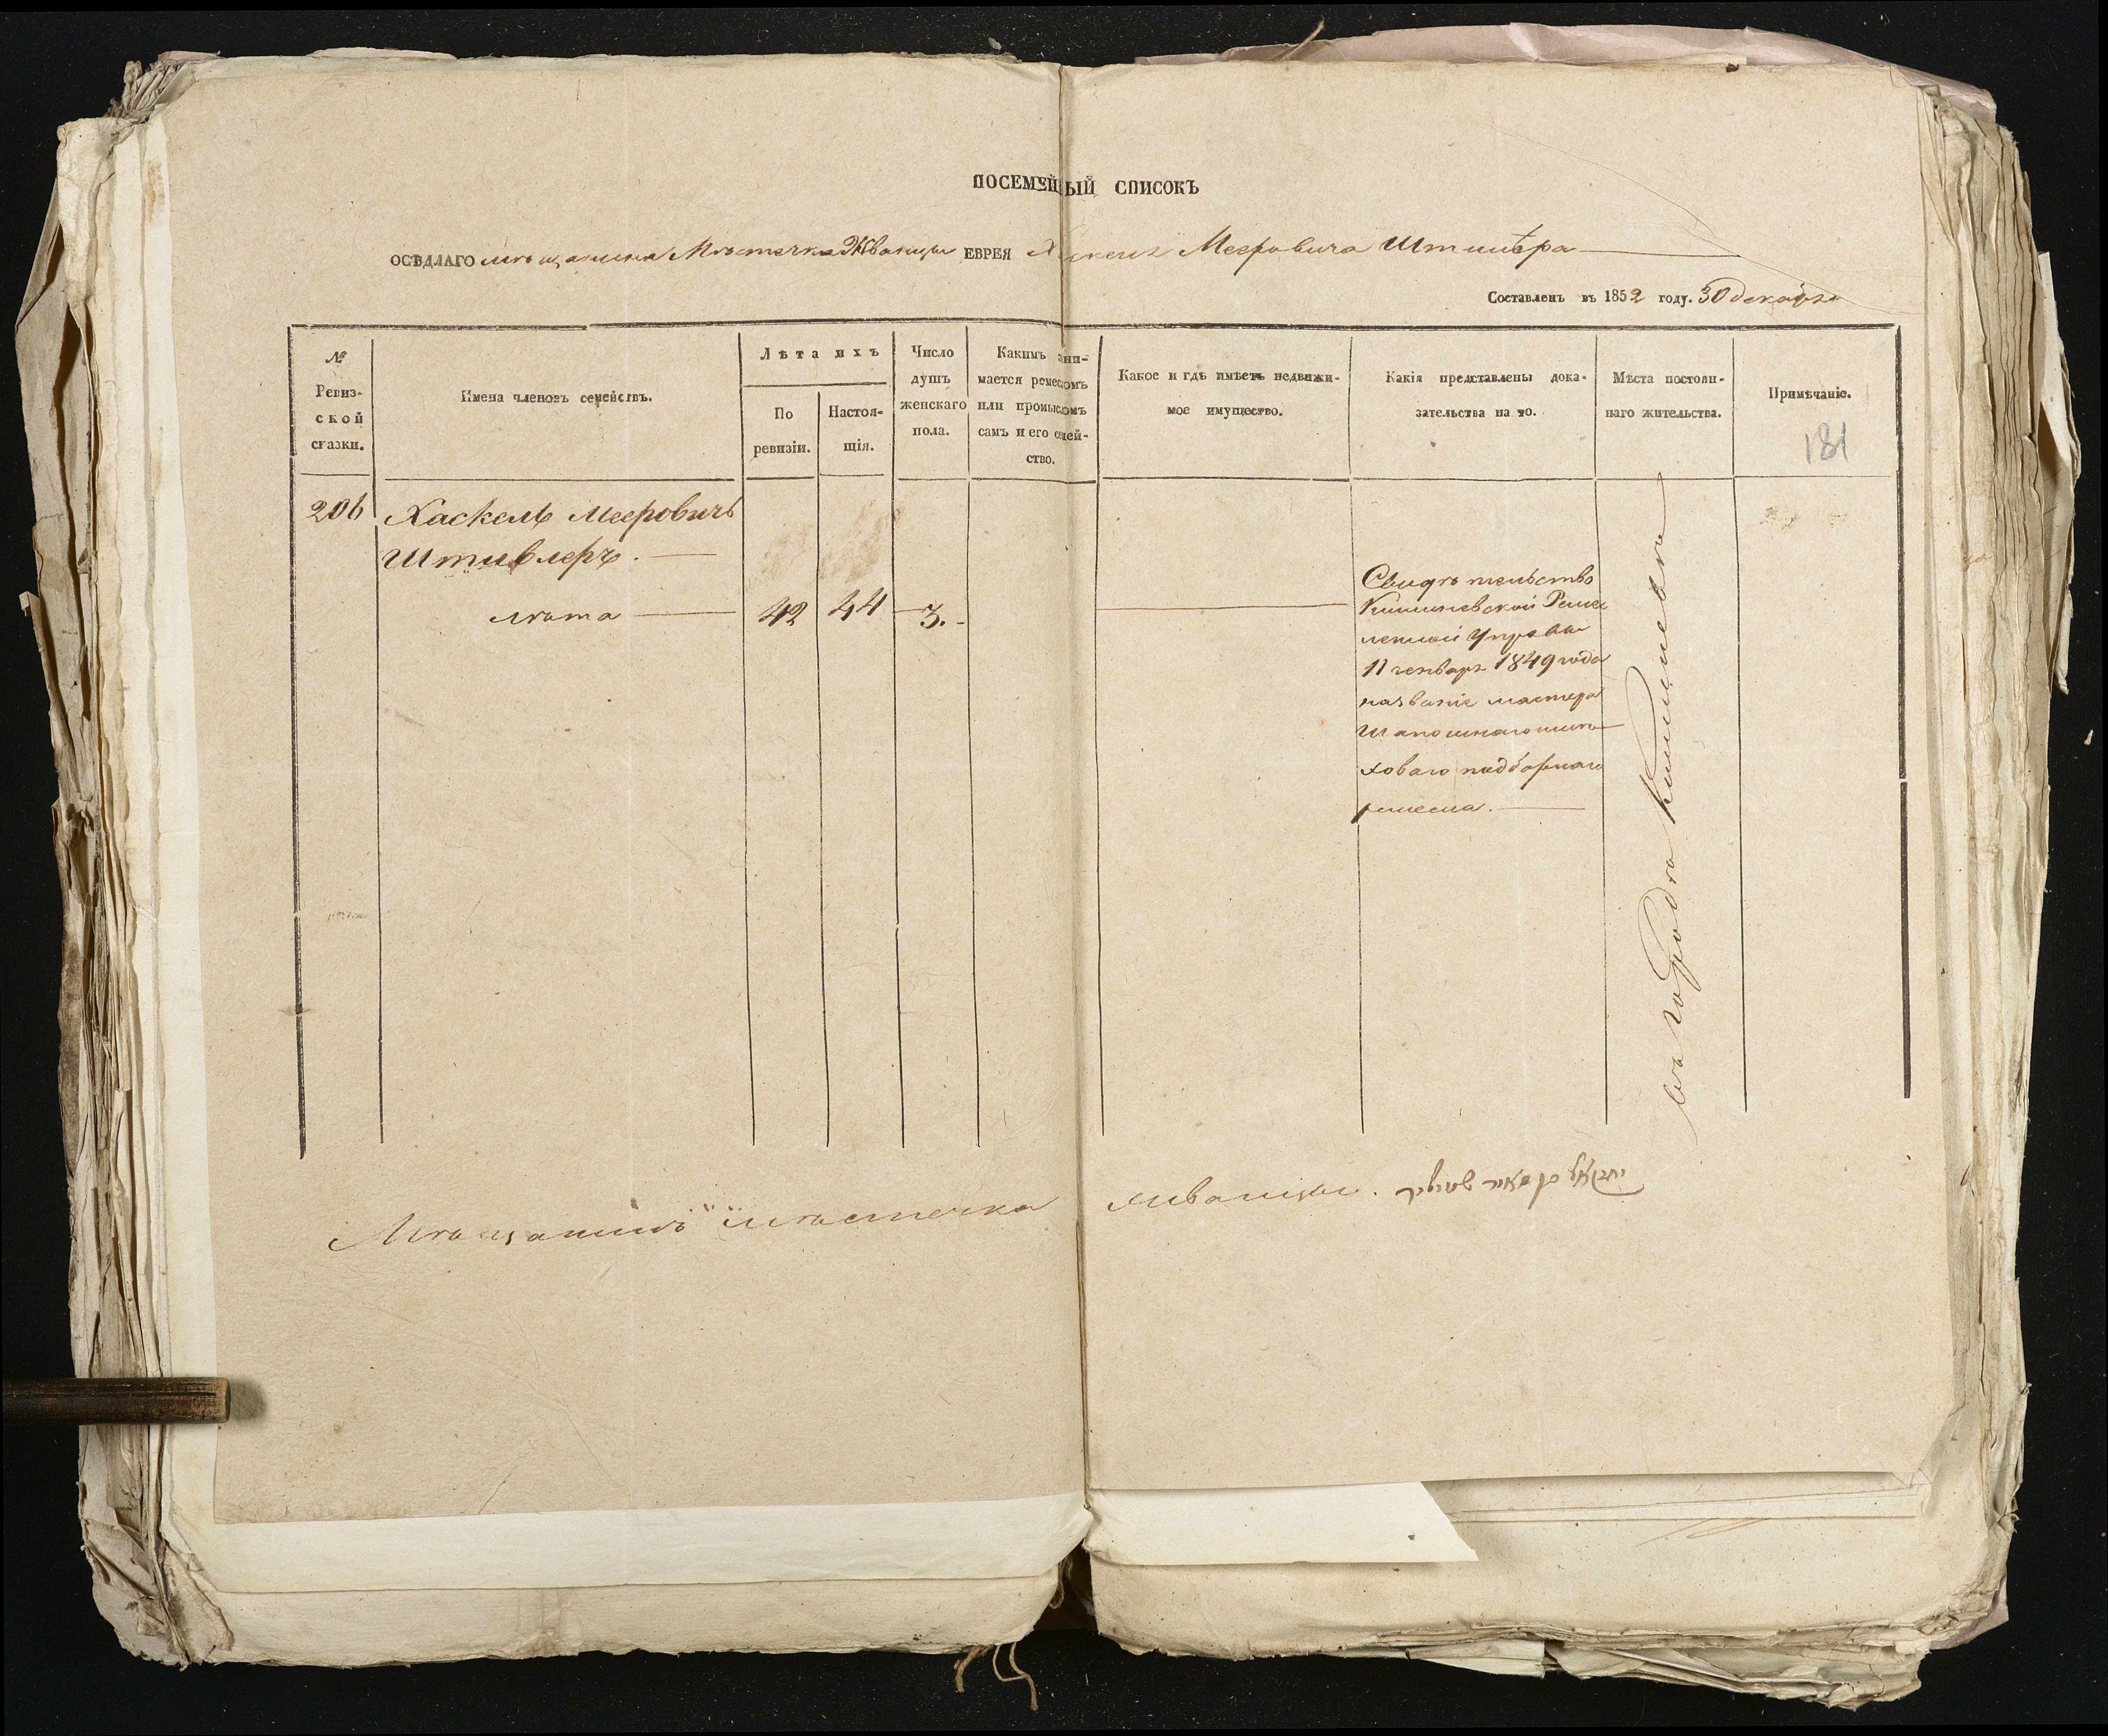 ПОСЕМЕЙНЫЙ СПИСОКЪ
ОСѢДЛАГО мѣщанина Мѣстечка Жванцы ЕВРЕЯ Хаскеля Мееровича Штивлѣра
Составленъ въ 1852 году. 30 декабря
№ Ревиз-
ской
сказки.
Имена членовъ семействъ.
Лѣта ихъ
По
ревизіи.
Настоя-
щія.
Число
душъ
женскаго
пола.
Какимъ зани-
мается ремесломъ
или промысломъ
самъ и его семей-
ство.
Какое и гдѣ имѣетъ недвижи-
мое имущество.
Какія представлены дока-
зательства на то.
Мѣста постоян-
наго жительства.
Примѣчаніе.
181
206 Хаскель Мееровичъ
Штивлеръ.
лѣта 42 44 3.
Свидѣтельство
Кишиневской Реме
сленной Управы
11 генваря 1849 года
названіе мастера
Шапошнаго
подборнаго
ремесла.
въ городѣ Кишиневѣ
Мѣщанинъ мѣстечка Жванцы. יחזקאל בן מאיר שטיװליר